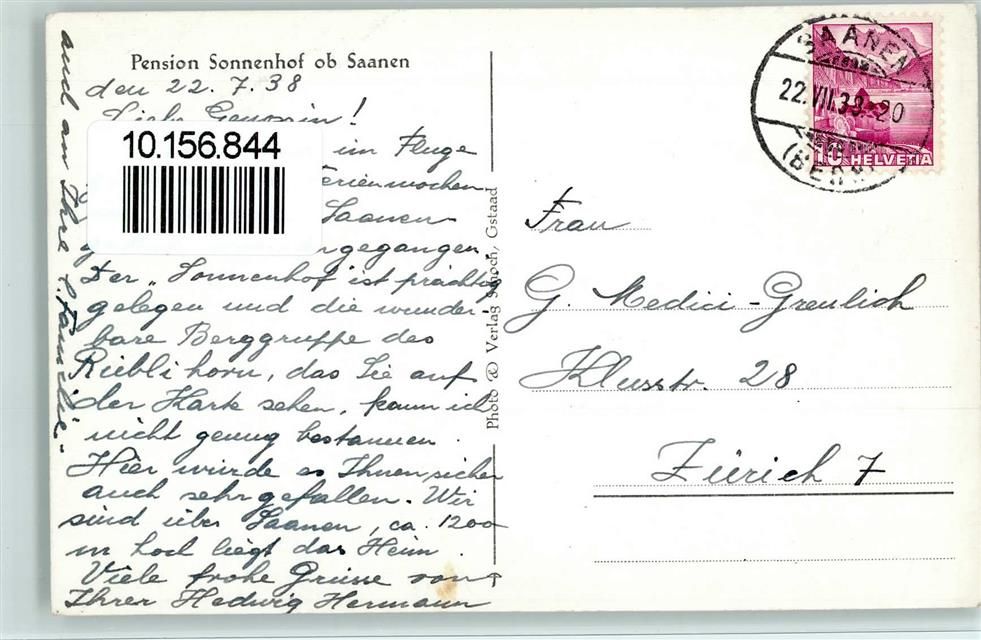 Pension Sonnenhof ob Saanen
den 22.7.38
Liebe Genossin!
10.156.844
im Fluge
Ferienwochen
Saanen
gegangen
Der „Sonnenhof ist prächtig
gelegen und die wunder-
bare Berggruppe des
Rüblihorn, das Sie auf
der Karte sehen, kann ich
nicht genug bestaunen.
Hier würde es Ihnen sicher
auch sehr gefallen. Wir
sind über Saanen, ca. 1200
m hoch liegt das Heim.
Viele frohe Grüsse von
Ihrer Hedwig Hermann
auch an Ihre l. Familie.
Photo & Verlag Schoch, Gstaad
SAANEN
22.VII.38.-20
(BERN)
10 HELVETIA
Frau
G. Medici-Greulich
Klusstr. 28
Zürich 7